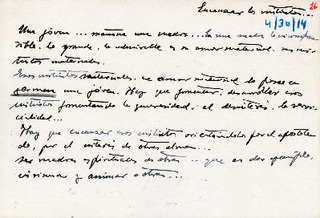 Encauzar los instintos... 26
4/30/14
Una jóven ... mañana una madre... En una madre lo incompren
sible, lo grande, lo admirable es su amor maternal. sus ins-
tintos maternales.
Esos instintos maternales, ese amor maternal lo posee en
germen una jóven. Hay que fomentar, desarrollar esos
instintos fomentando la generosidad, el desinterés, la servi-
cialidad...
Hay que encauzar esos instintos orientándolos por el apostola-
do, por el interés de otras almas...
ser madres espirituales de otras .. que es dar ejemplo,
y animar a otras...